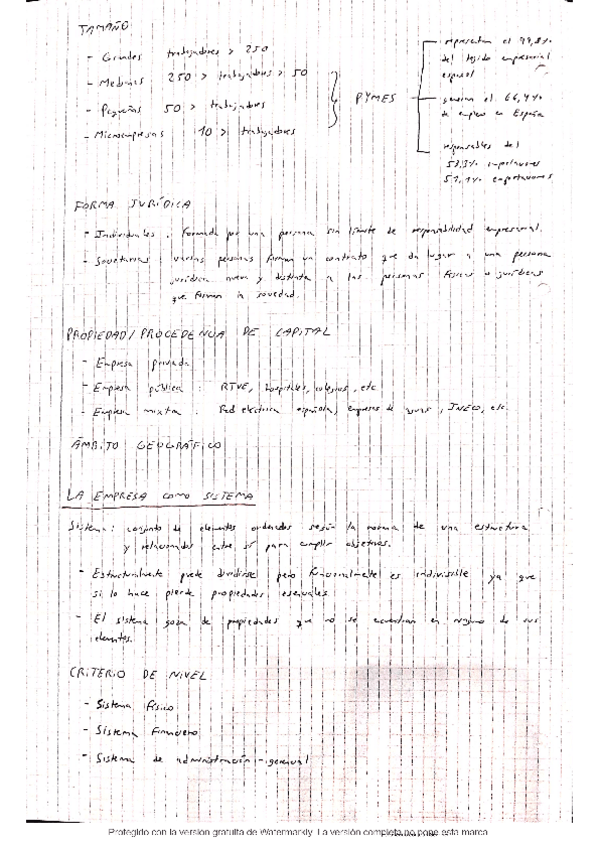 TAMAÑO
- Grandes trabajadores > 250
- Medianas 250 > trabajadores > 50
- Pequeñas 50 > trabajadores
- Microempresas 10 > trabajadores
PYMES
representan el 99,8% del tejido empresarial español
generan el 66,4% de empleo en España
responsables del
53,3% importaciones
51,1% exportaciones
FORMA JURÍDICA
- Individuales : formada por una persona sin límite de responsabilidad empresarial.
- Societarias : varias personas firman un contrato que da lugar a una persona
jurídica nueva y distinta a las personas físicas o jurídicas
que forman la sociedad.
PROPIEDAD/PROCEDENCIA DE CAPITAL
- Empresa privada
- Empresa pública : RTVE, hospitales, colegios, etc
- Empresa mixta : Red eléctrica española, empresas de aguas, INECO, etc.
ÁMBITO GEOGRÁFICO
LA EMPRESA COMO SISTEMA
Sistema: conjunto de elementos ordenados según la norma de una estructura
y relacionados entre sí para cumplir objetivos.
- Estructuralmente puede dividirse pero funcionalmente es indivisible ya que
si lo hace pierde propiedades esenciales
- El sistema goza de propiedades que no se encuentran en ninguno de sus
elementos.
CRITERIO DE NIVEL
- Sistema físico
- Sistema financiero
- Sistema de administración-gerencial
Protegido con la versión gratuita de Watermarkly. La versión completa no pone esta marca.